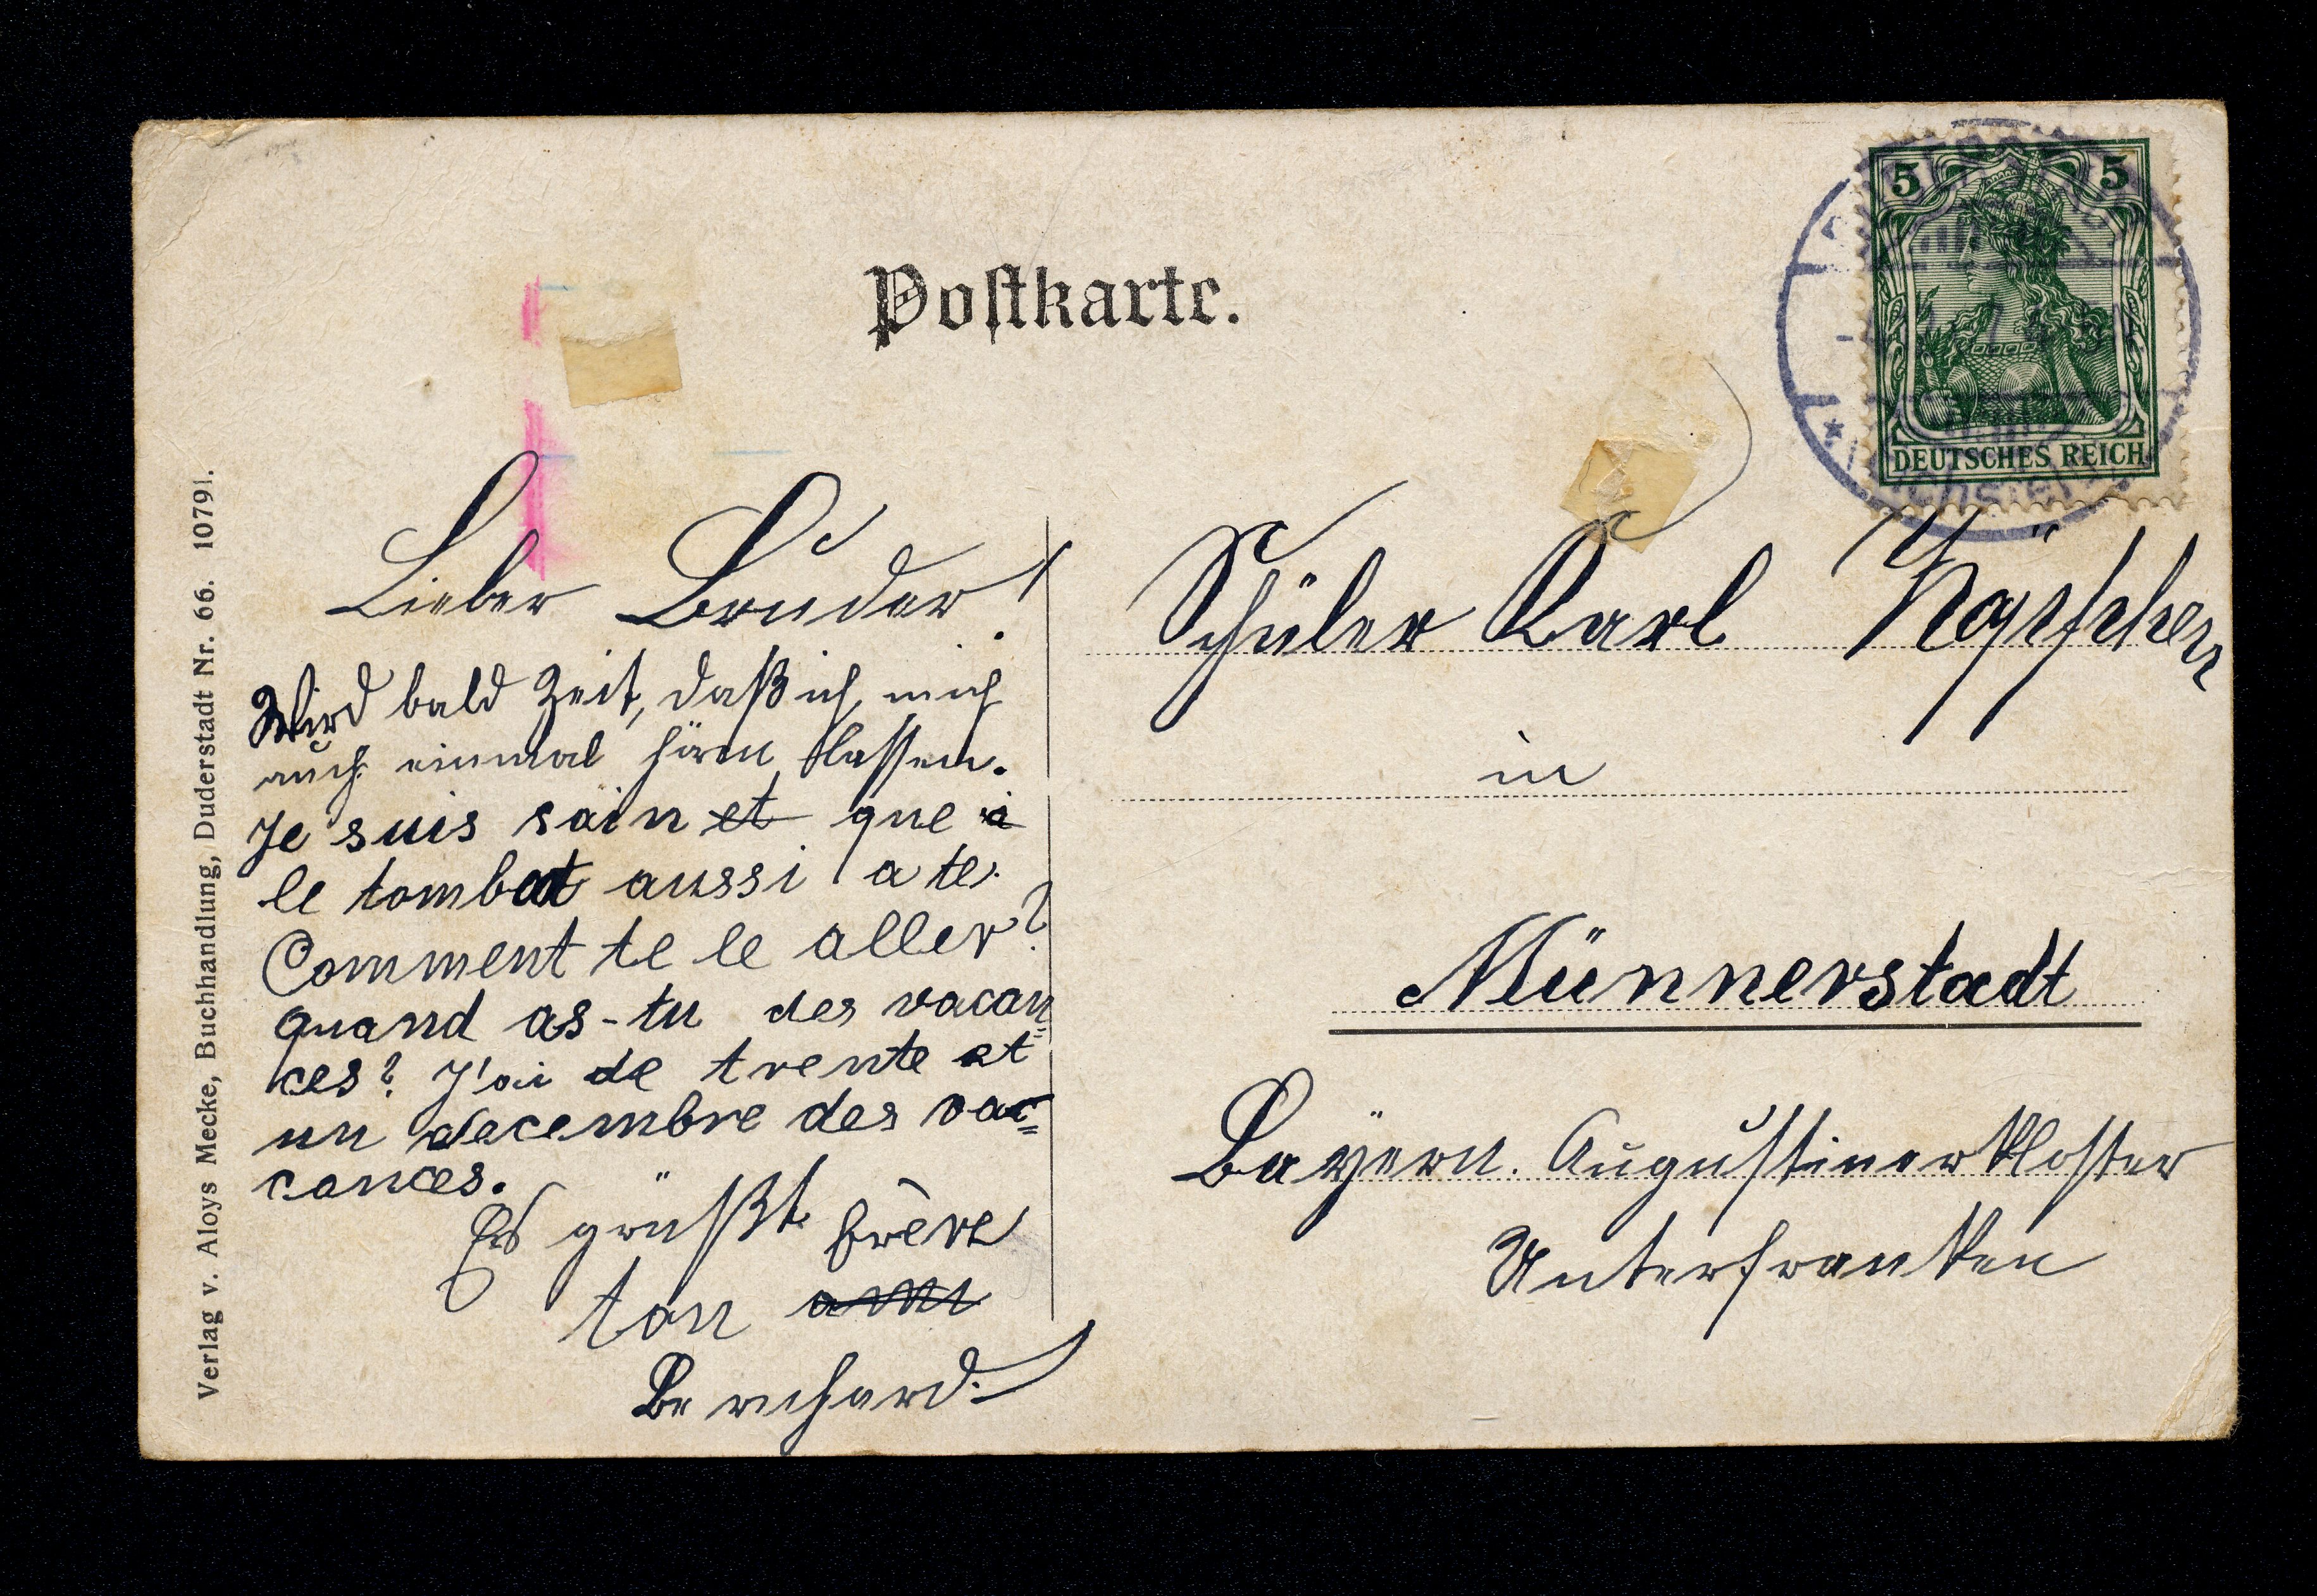 Postkarte.
5 5
DEUTSCHES REICH
Lieber Bruder!
Wird bald Zeit, daß ich mich
auch einmal hören lassen.
Je suis sain et que
le tombat aussi a te.
Comment te le aller?
quand as-tu des vacan=
ces? J'ai de trente et
un decembre des vac=
cances.
Es grüßt frère
ton ami
Bernhard.
Schüler Karl
in
Münnerstadt
Bayern. Augustinerkloster
Unterfranken
Verlag v. Aloys Mecke, Buchhandlung, Duderstadt Nr. 66. 10791.